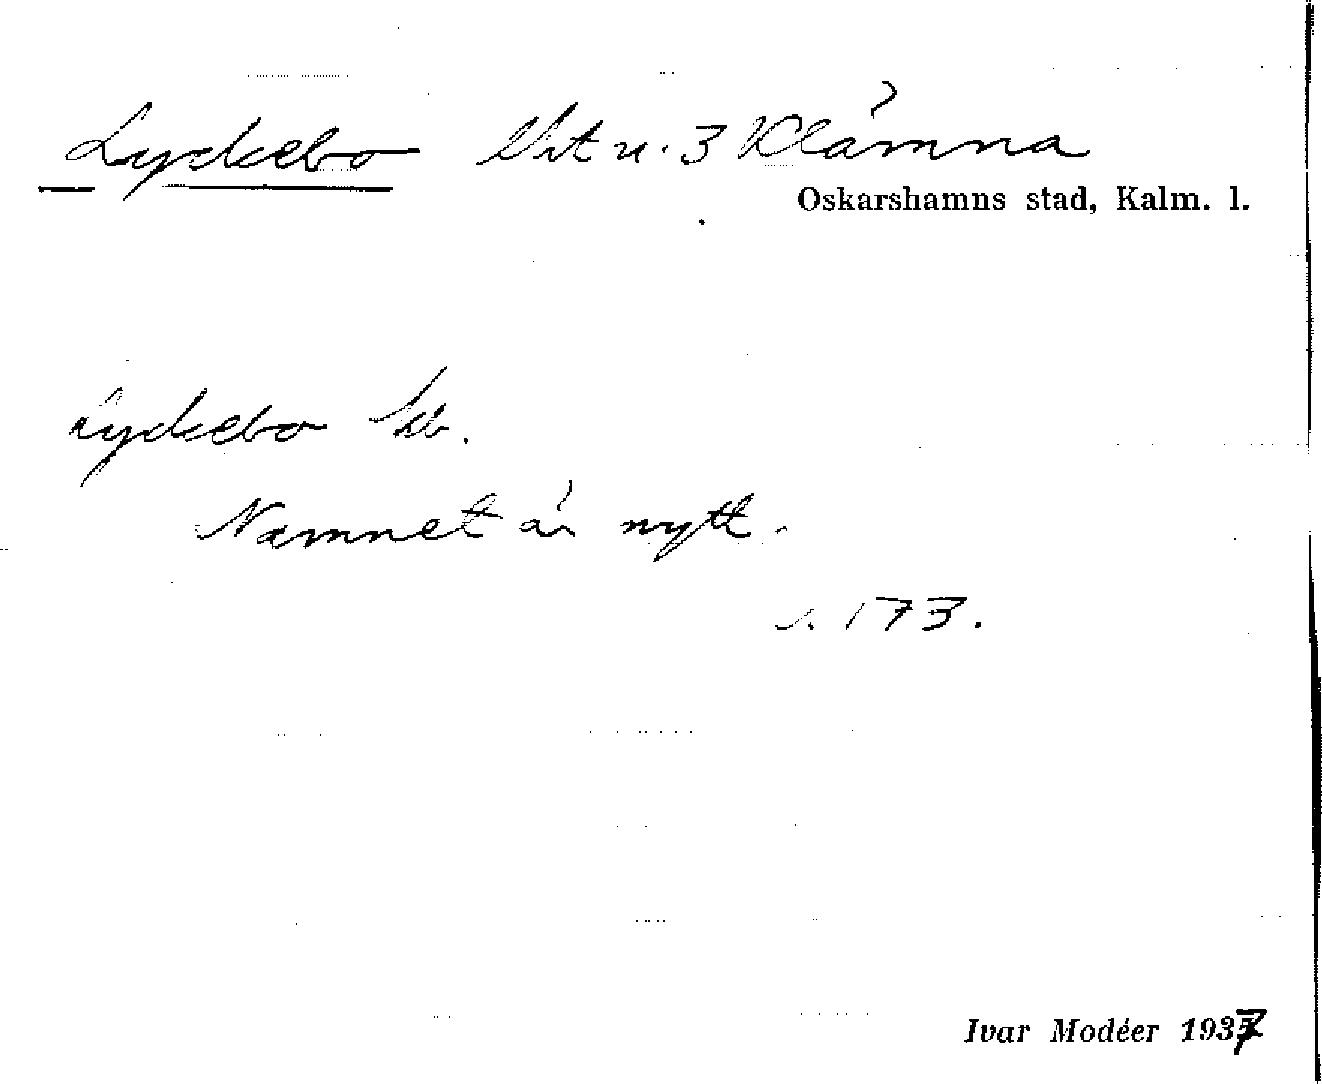 Lyckebo Vit u. 3 Klämna
Oskarshamns stad, Kalm. l.
Lyckebo
Namnet är nytt.
s. 173.
Ivar Modéer 1937